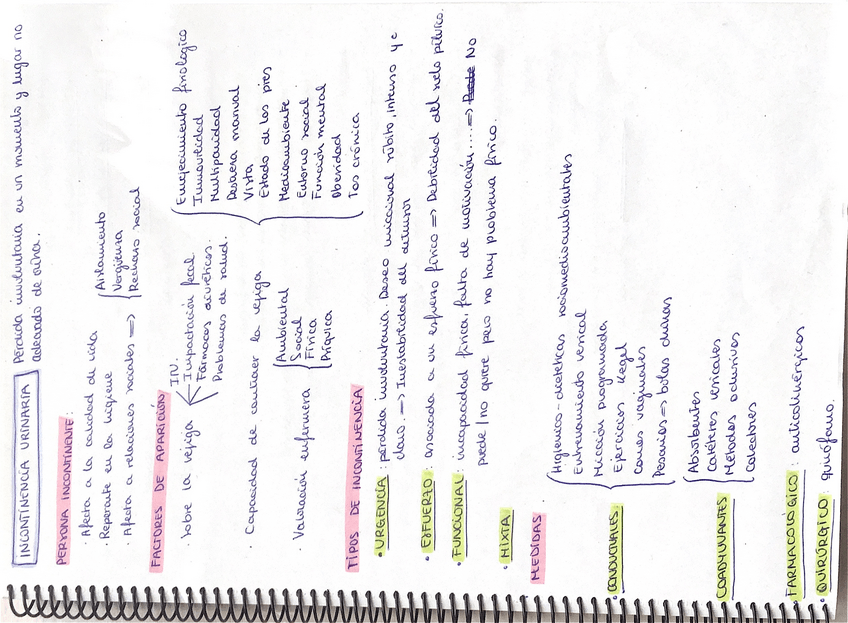 INCONTINENCIA URINARIA Pérdida involuntaria en un momento y lugar no
adecuado de orina.
PERSONA INCONTINENTE:
· Afecta a la calidad de vida
· Repercute en la higiene
· Afecta a relaciones sociales => { Aislamiento
Vergüenza
Rechazo social
FACTORES DE APARICIÓN
· Sobre la vejiga
ITU.
Impactación fecal.
Fármacos diuréticos.
Problemas de salud.
· Capacidad de contraer la vejiga
Envejecimiento fisiológico
Inmovilidad
Multiparidad
Destreza manual
Vista
Estado de los pies
Medioambiente
Entorno social
Función mental
Obesidad
Tos crónica
· Valoración enfermera
Ambiental
Social
Física
Psíquica
TIPOS DE INCONTINENCIA
· URGENCIA: pérdida involuntaria. Deseo miccional súbito, intenso y c
claro. -> Inestabilidad del detrusor
· ESFUERZO: asociada a un esfuerzo físico => Debilidad del suelo pélvico.
· FUNCIONAL: incapacidad física, falta de motivación ... => No
puede / no quiere pero no hay problema físico.
· MIXTA
MEDIDAS
· CONDUCTUALES
Higiénico-dietéticas sociomedioambientales
Entrenamiento vesical
Micción programada
Ejercicios Kegel
Conos vaginales
Pesarios => bolas chinas
COADYUVANTES
Absorbentes
Catéteres vesicales
Métodos oclusivos
Colectores
· FARMACOLÓGICO: anticolinérgicos
· QUIRÚRGICO: quirófano.